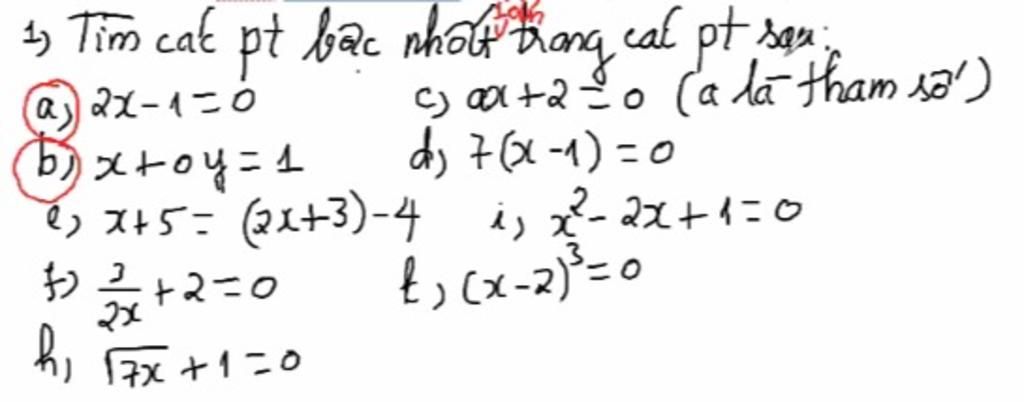 1) Tìm các pt bậc nhất trong các pt sau:
a) 2x-1=0 c) ax+2=0 (a là tham số)
b) x+0y=1 d) 7(x-1)=0
e) x+5=(2x+3)-4 i) x²-2x+1=0
f) 3/2x+2=0 t) (x-2)³=0
h) √7x+1=0